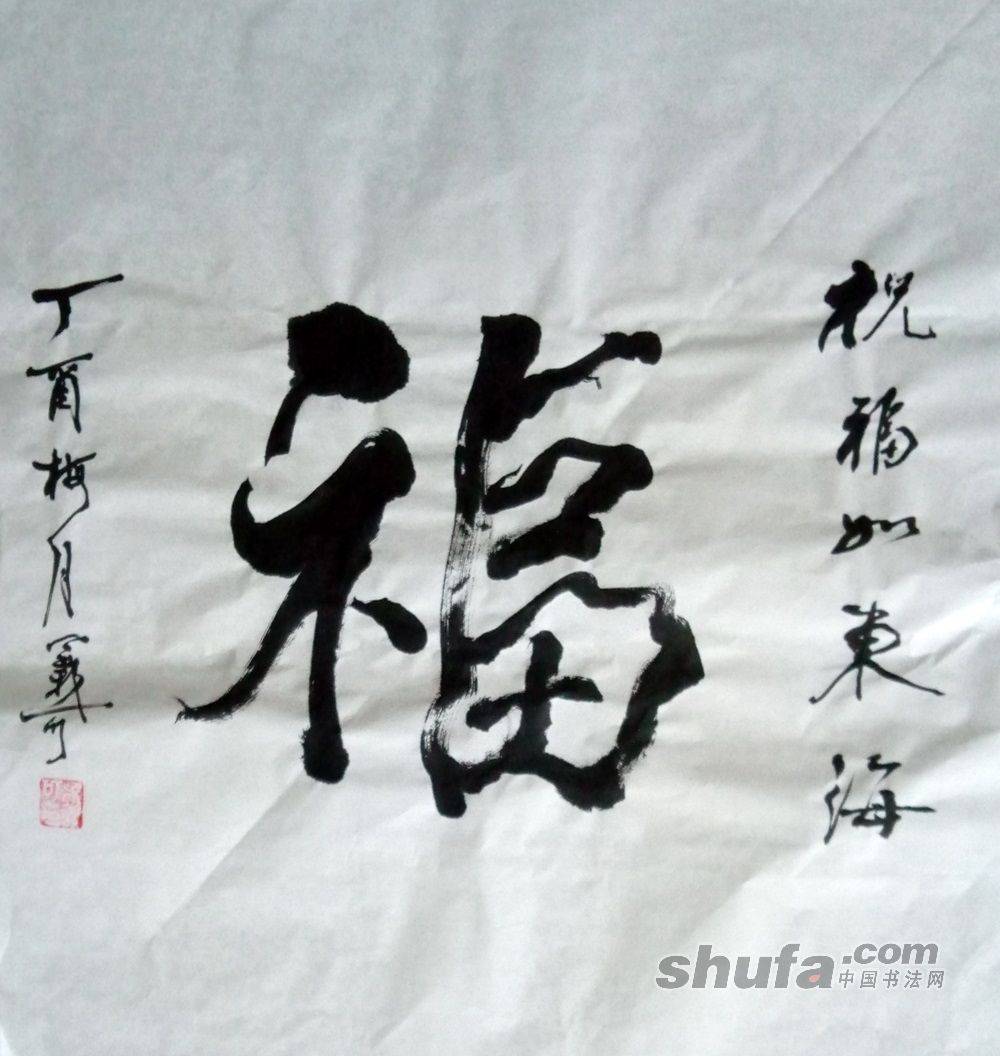 祝福如東海
福
丁酉梅月
shufa.com
中国书法网